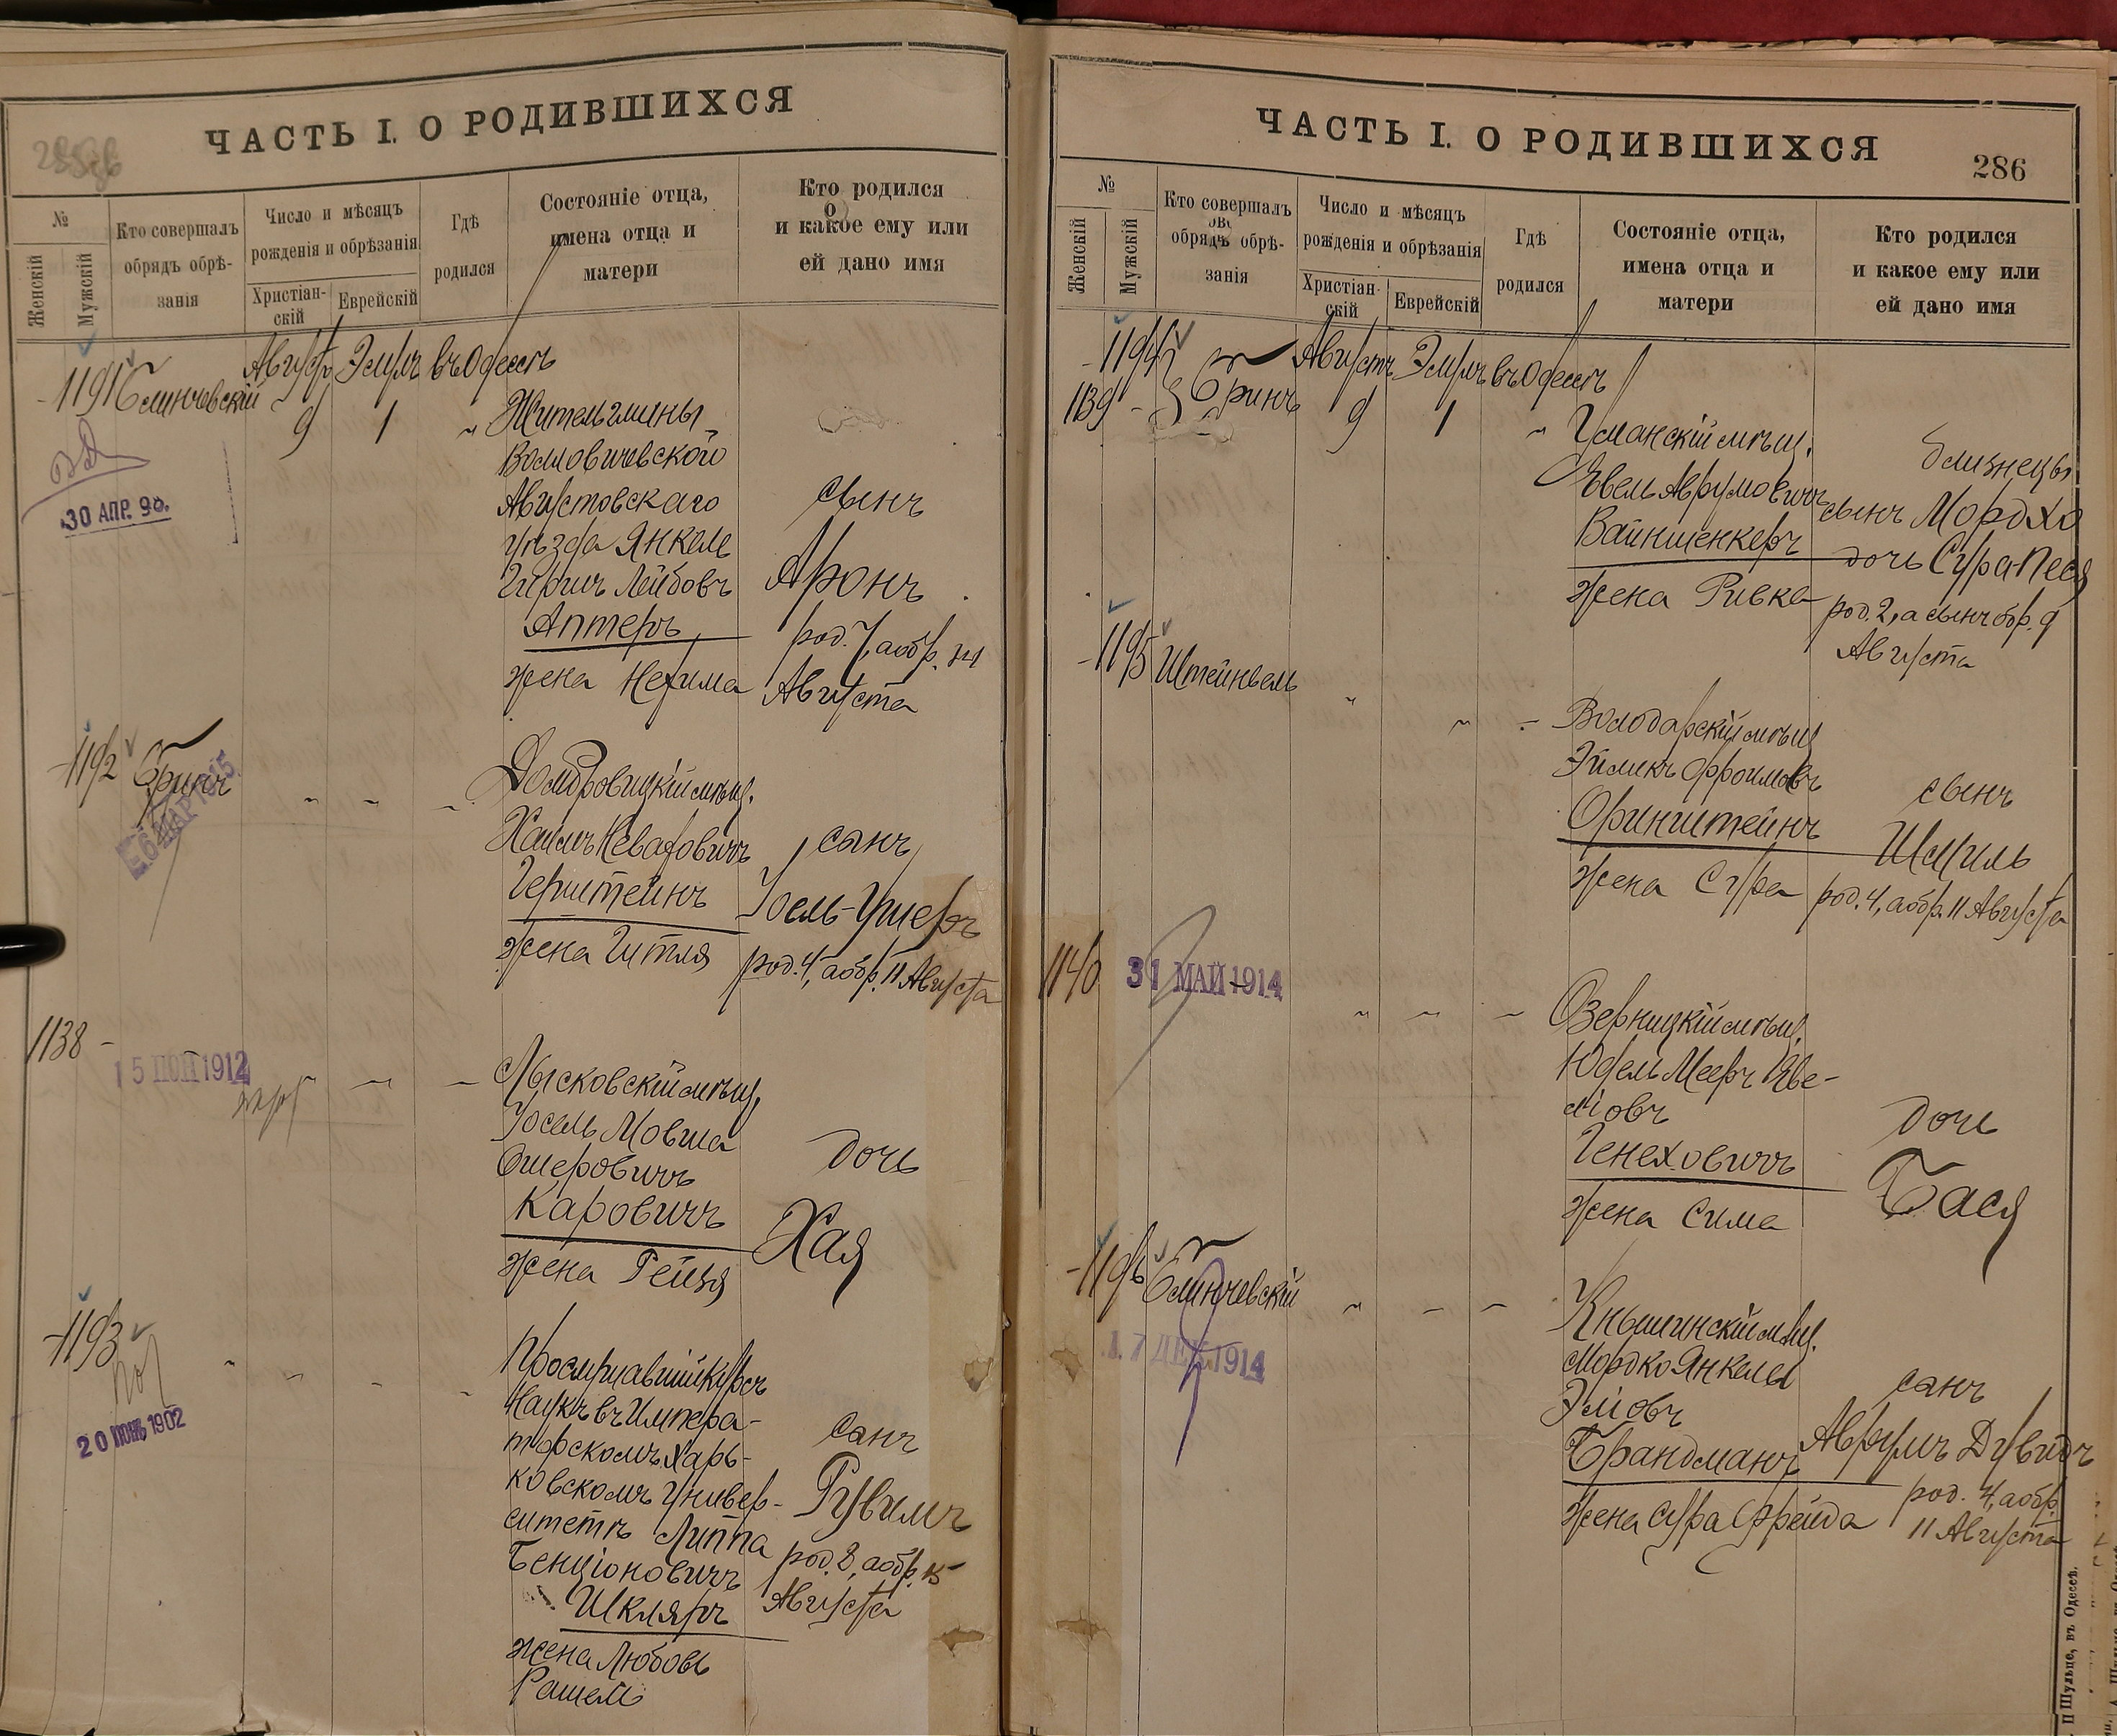 ЧАСТЬ I. О РОДИВШИХСЯ
№
Женскій
Мужскій
Кто совершалъ
обрядъ обрѣ-
занія
Число и мѣсяцъ
рожденія и обрѣзанія
Христіан-
скій
Еврейскій
Гдѣ
родился
Состояніе отца,
имена отца и
матери
Кто родился
и какое ему или
ей дано имя
1191
Августъ Элулъ въ Одессѣ
9 1
Житель гмины
Августовскаго
уѣзда Янкель
Лейбовъ
Аптеръ
жена Нехима
сынъ
Аронъ
род. 7, а обр. 14
Августа
30 АПР. 98.
1192 Бринъ
Домбровицкій мѣщ.
Хаимъ
Герштейнъ
жена Гитля
сынъ
Іоель-Ушеръ
род. 4, а обр. 11 Августа
1138 -
15 1912
Лысковскій мѣщ.
Іосель Мовша
Ошеровичъ
Каровичъ
жена Рейзя
дочь
Хая
1193
20 1902
Прослушавшій курсъ
Наукъ въ Импера-
торскомъ Харь-
ковскомъ Универ-
ситетѣ Липпа
Бенціоновичъ
Шкляръ
жена Любовь
Рашель
сынъ
Рувимъ
род. 8, а обр. 15
Августа
ЧАСТЬ I. О РОДИВШИХСЯ
286
№
Женскій
Мужскій
Кто совершалъ
обрядъ обрѣ-
занія
Число и мѣсяцъ
рожденія и обрѣзанія
Христіан-
скій
Еврейскій
Гдѣ
родился
Состояніе отца,
имена отца и
матери
Кто родился
и какое ему или
ей дано имя
1194
1139 - Бринъ
Августъ Элулъ въ Одессѣ
9 1
Уманскій мѣщ.
Авrумовичъ
Вайншенкеръ
жена Ривка
близнецы
сынъ Мордхо
дочь Сура Песя
род. 2, а сынъ обр. 9
Августа
1195
Володарскій мѣщ.
Фроимовъ
Оринштейнъ
жена Сура
сынъ
Шмуль
род. 4, а обр. 11 Августа
1140
31 МАЙ 1914
Озерницкій мѣщ.
Юдель Мееръ
Генеховичъ
жена Сима
дочь
Бася
1196
17 ДЕК 1914
Кнышинскій мѣщ.
Мордко Янкель
Эліовъ
Брандманъ
жена Сура Фрейда
сынъ
Аврумъ Дувидъ
род. 4, а обр.
11 Августа